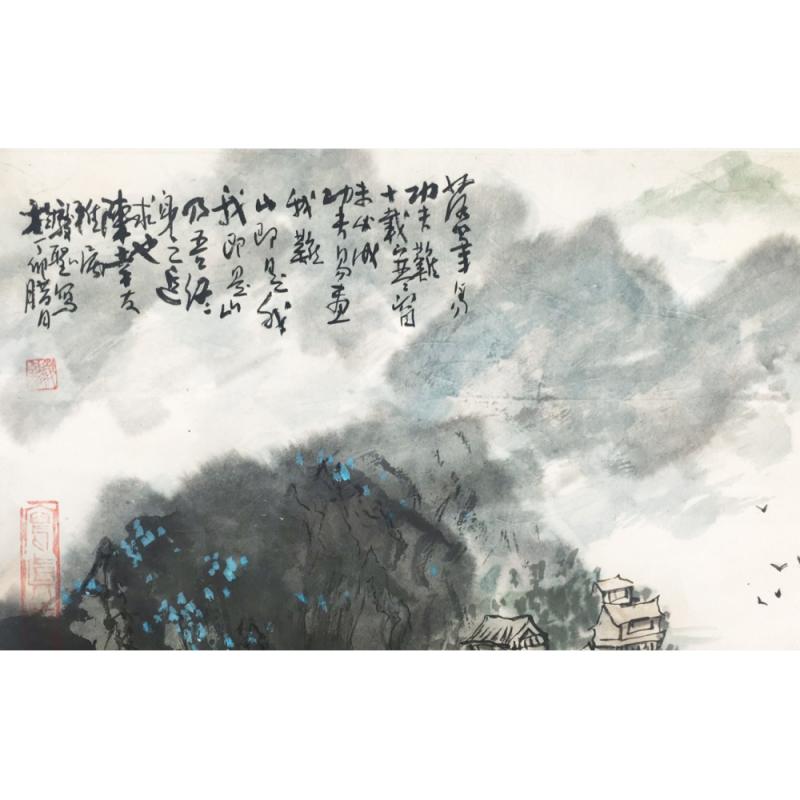 落筆易
功夫難
十載寒窗
未必成
功夫易画
我難
山即是我
我即是山
乃吾終
身之追
求也
陳友
雅
聖寫
於丁卯腊月